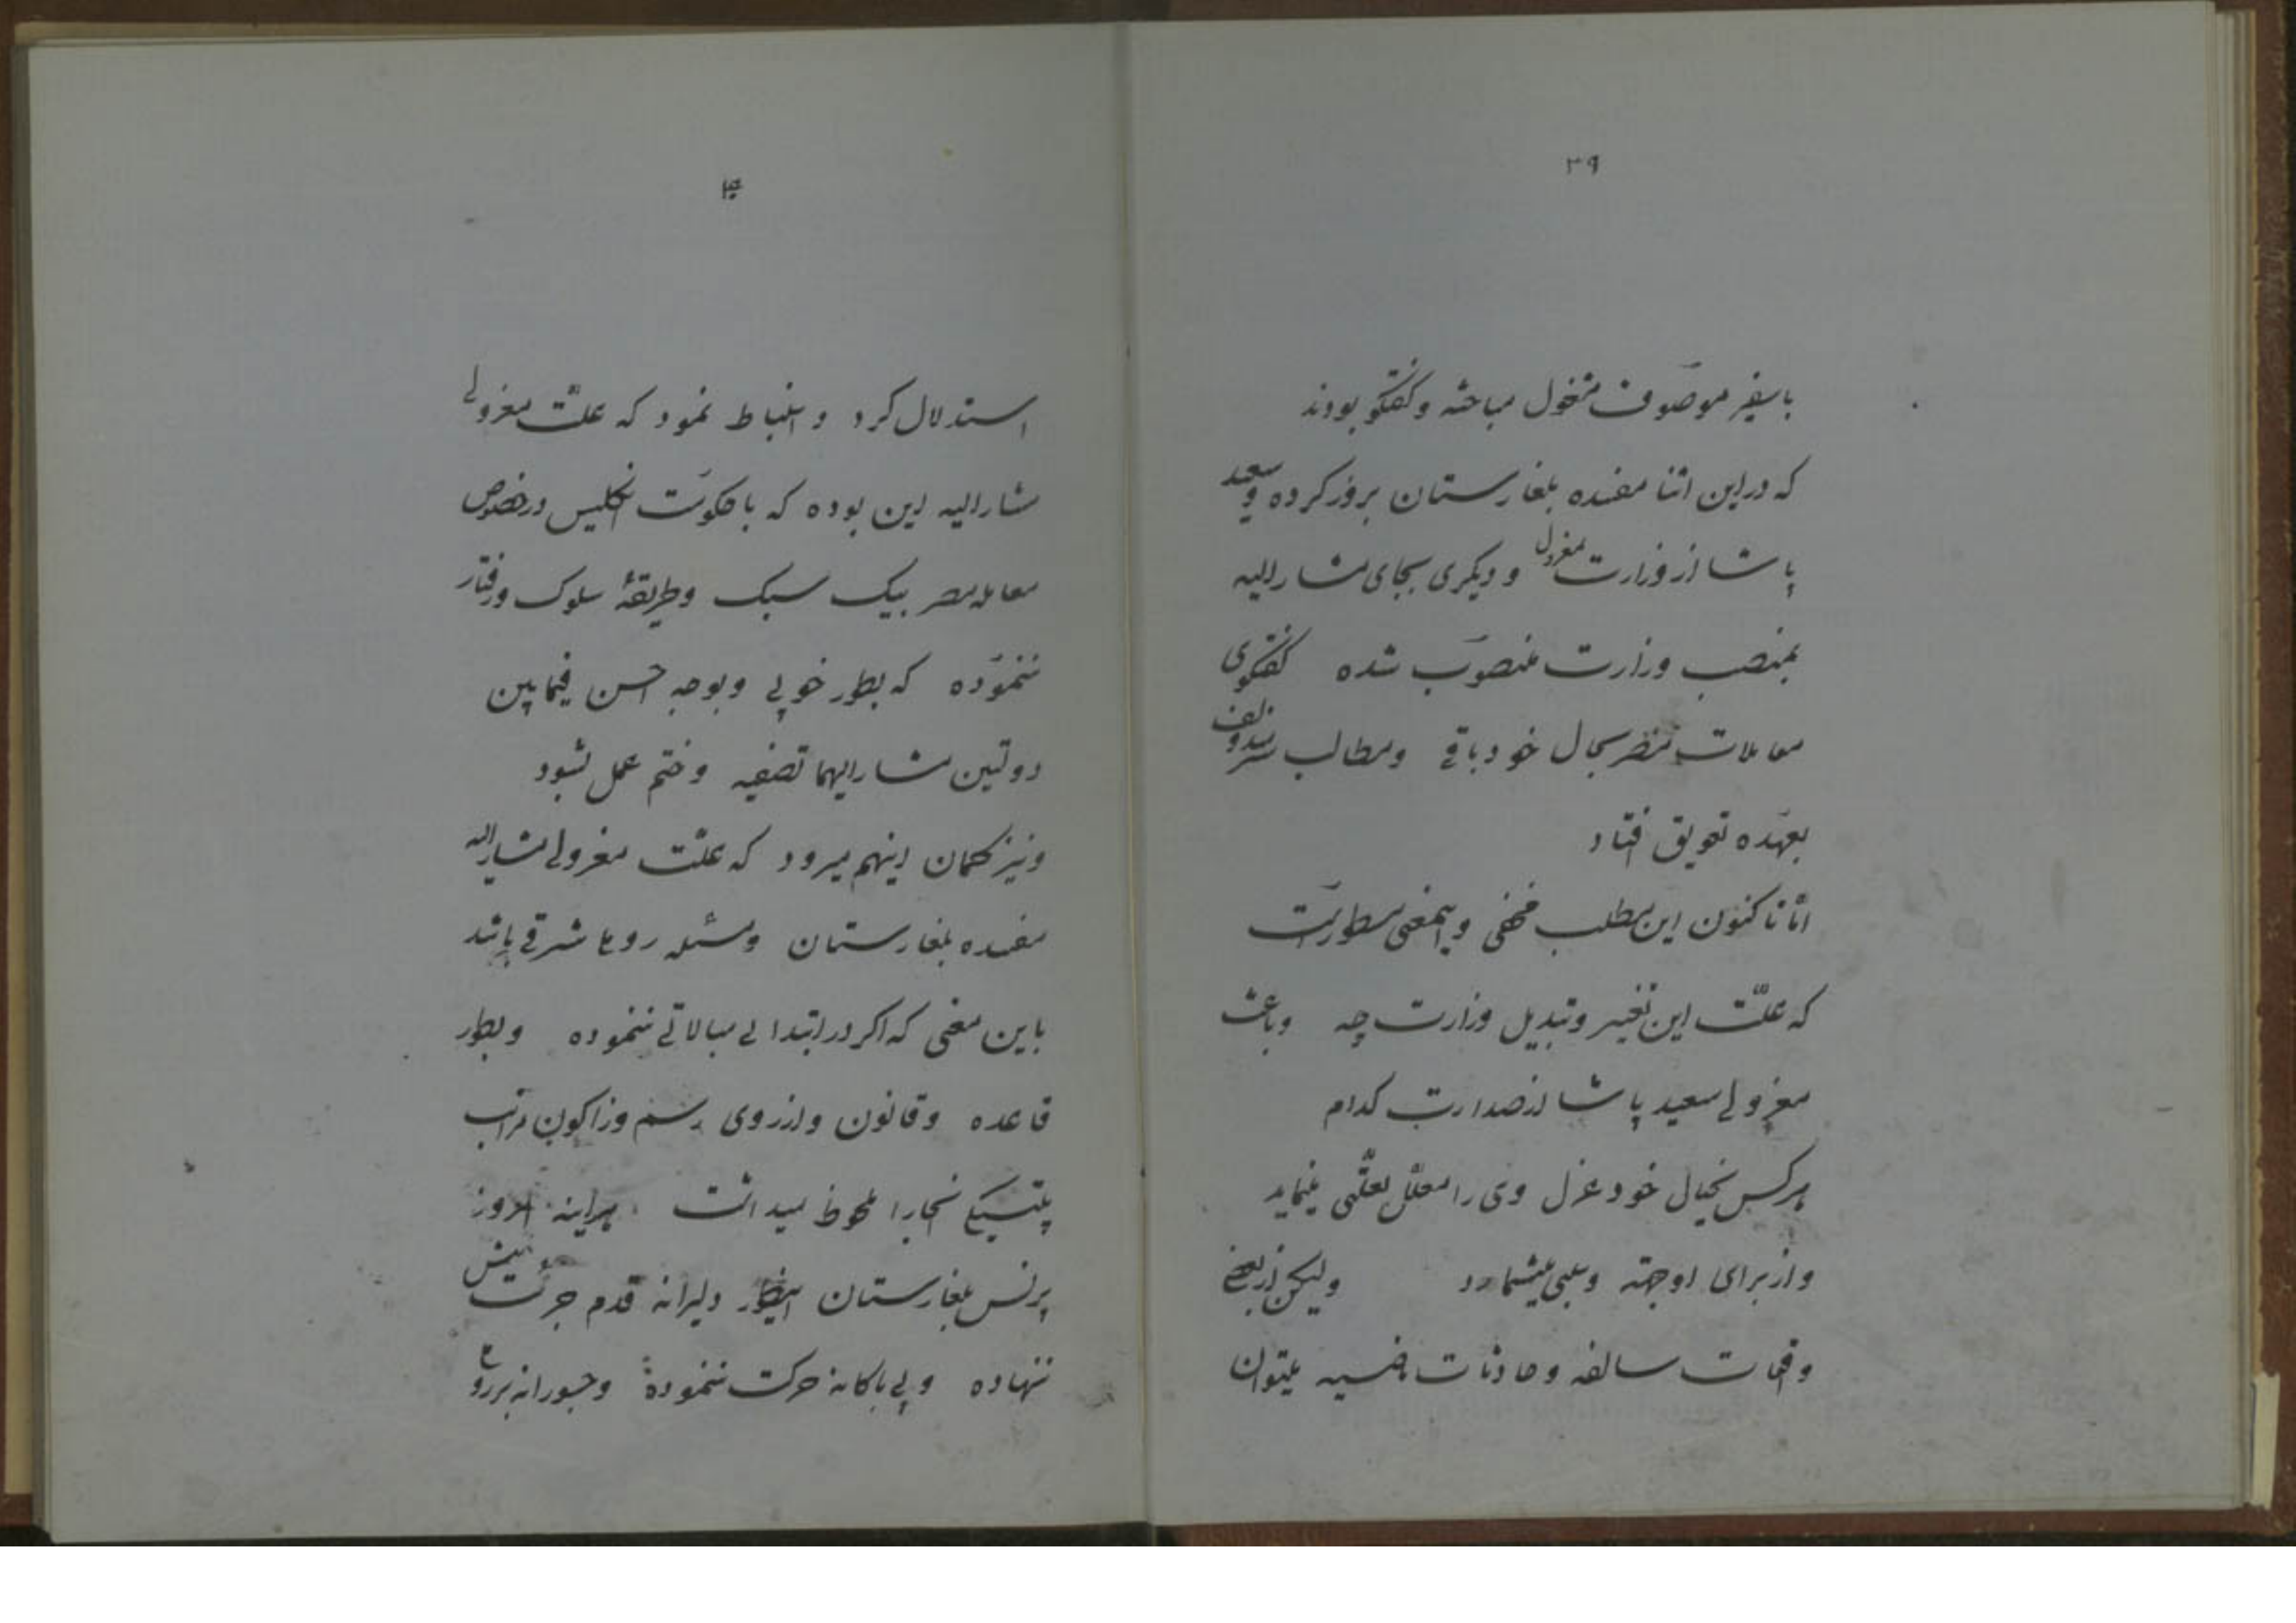 ۳۹
باسفیر موصوف مشغول مباحثه و کفتکو بودند
که در این اثنا مفسده بلغارستان بروز کرده و سعید
پاشا از وزارت معزول و دیکری بجای مشارالیه
بمنصب وزارت منصوب شده کفتکوی
معاملات مصر بحال خود باقی ومطالب
بعهده تعویق افتاد
اما تا کنون این مطلب مخفی و اینمعنی مستور است
که علّت این تغییر وتبدیل وزارت چه وباعث
معزولی سعید پاشا از صدارت کدام
هرکس بخیال خود عزل وی را معلّل بعلّتی مینماید
و از برای او جهته وسببی میشمارد ولیکن از بعضی
وقعات سالفه و حادثات ماضیه میتوان
۴۰
استدلال کرد و استنباط نمود که علّت معزولی
مشارالیه این بوده که با حکومت انکلیس در خصوص
معامله مصر بیک سبک وطریقهٔ سلوک ورفتار
ننموده که بطور خوبی وبوجه احسن فیمابین
دولتین مشارالیهما تصفیه وختم عمل بشود
ونیز کمان اینهم میرود که علّت معزولی مشارالیه
مفسده بلغارستان ومسئله روملی شرقی باشد
باین معنی که اکر در ابتدا بی مبالاتی ننموده وبطور
قاعده وقانون و از روی رسم وزاکون مراتب
پلتیکی آنجا را ملحوظ میداشت هراینه امروز
پرنس بلغارستان اینطور دلیرانه قدم جرئت پیش
ننهاده وبی باکانه حرکت ننموده وجسورانه بر روی